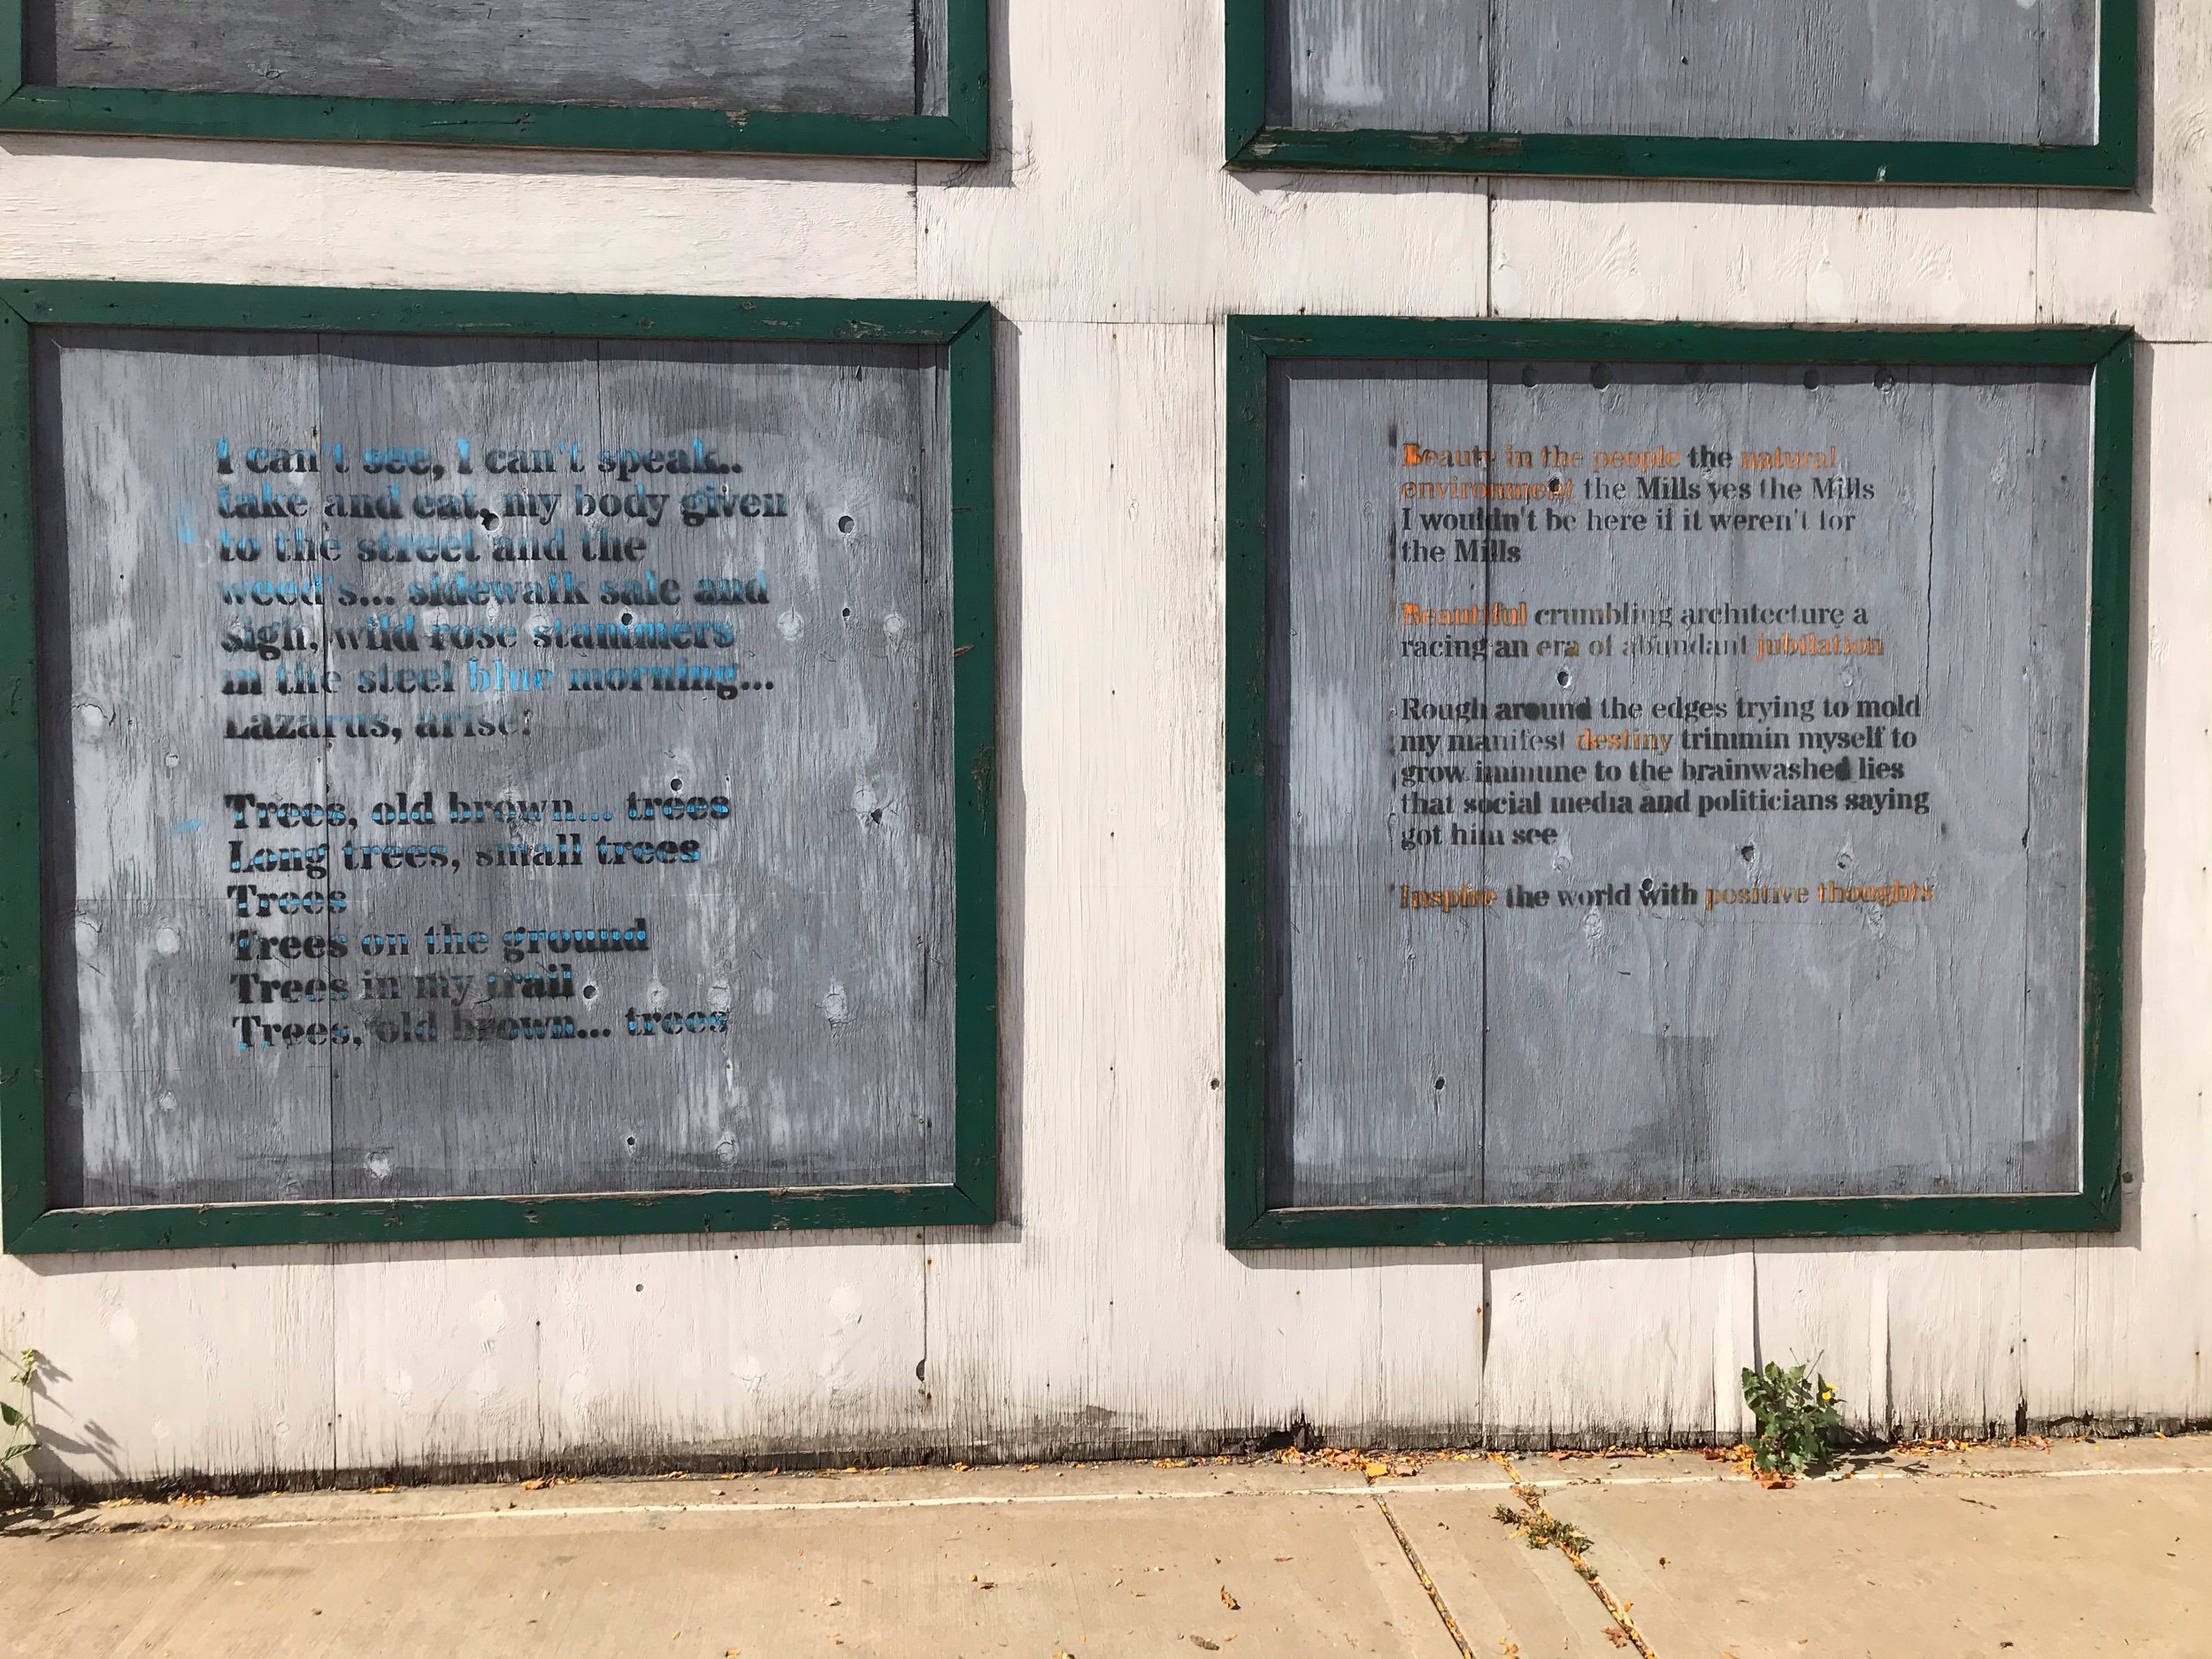 I can't see, I can't speak..
take and eat, my body given
to the street and the
weed's... sidewalk sale and
sigh, wild rose stammers
in the steel blue morning...
Lazarus, arise!
Trees, old brown... trees
Long trees, small trees
Trees
Trees on the ground
Trees in my trail
Trees, old brown... trees
Beauty in the people the natural
environment the Mills yes the Mills
I wouldn't be here if it weren't for
the Mills
Beautiful crumbling architecture a
racing an era of abundant jubilation
Rough around the edges trying to mold
my manifest destiny trimmin myself to
grow immune to the brainwashed lies
that social media and politicians saying
got him see
Inspire the world with positive thoughts